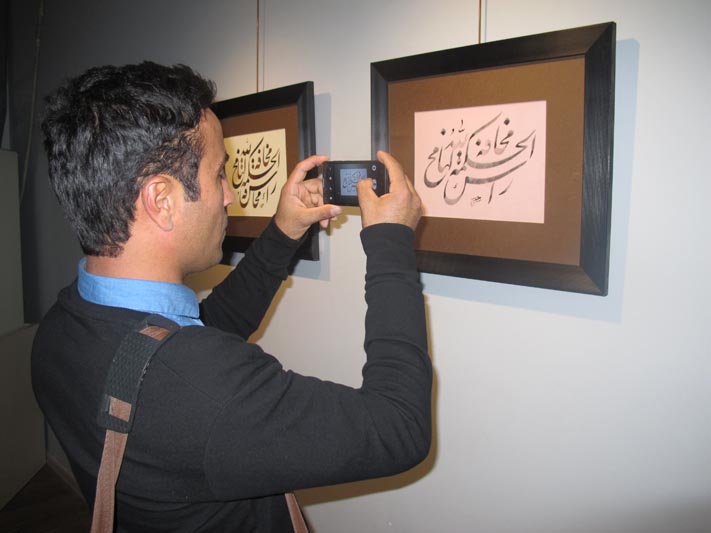 راس الحكمة مخافة الله
راس الحكمة مخافة الله